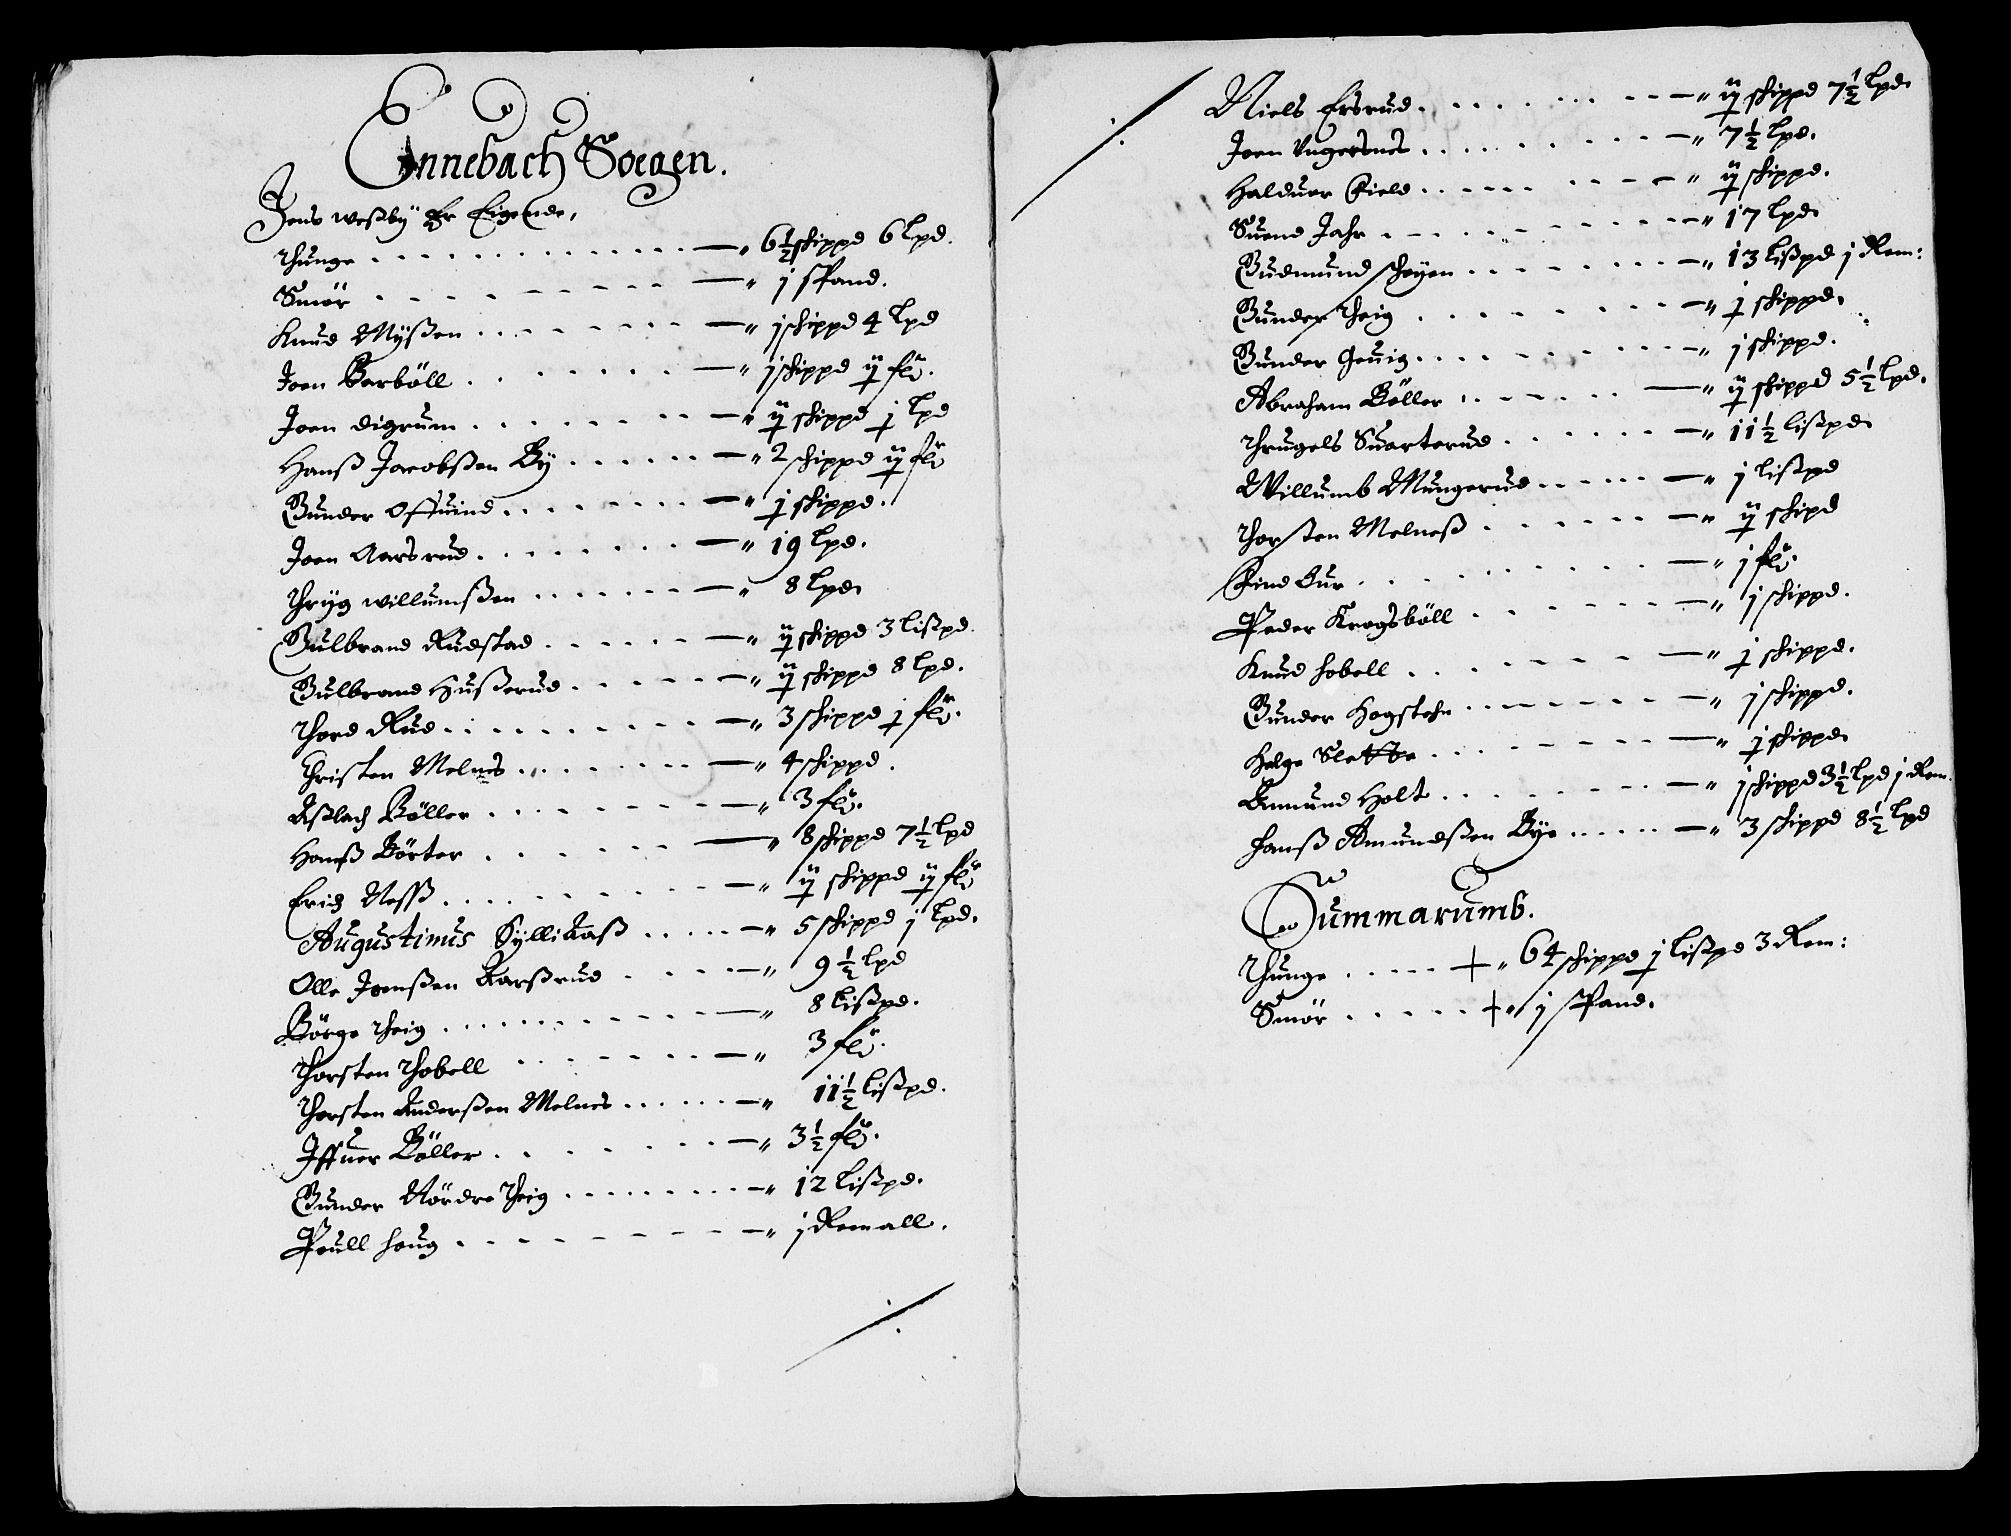 Ennebach Soegen.
Jens weßby Er Eigende,
thunge . . . . . . . . . . . . . . — „ 6½ schippd 6 lpd.
Smör . . . . . . . . . — „ j spand.
Knud Myßen . . . . . . . — „ j schippd 4 lpd
Joen Barböll . . . . . . . — „ j schippd ij fℓr.
Joen digrum . . . . . . . . — „ ij schippd j lpd
Hanß Jacobßen By . . . . . . — „ 2 schippd ij fℓr
Gunder Oftuind . . . . . . . . — „ j schippd.
Joen Aarsrud . . . . . . . — „ 19 lpd.
thryg willumßen . . . . . . . — „ 8 lpd
Gulbrand Rudstad . . . . . — „ ij schippd 3 lißpd.
Gulbrand Hußerud . . . . . — „ ij schippd 8 lpd.
thord Rud . . . . . . . . . — „ 3 schippd j fℓr.
Christen Melnes . . . . . . . — „ 4 schippd.
Aßlach Böller . . . . . . . — „ 3 fℓr.
Hanß Börter . . . . . . — „ 8 schippd 7½ lpd
Erich Neßß . . . . . . . . — „ ij schippd ij fℓr
Augustinus Syllikaß . . . . . — „ 5 schippd j lpd.
Olle Jonßen Karßrud . . . . — „ 9½ lpd
Börge theig . . . . . . . . . . . — „ 8 lißpd.
thorsten thobell . . . . . . . — „ 3 fℓr.
thorsten Anderßen Melnes . . . . . . — „ 11½ lißpd.
Iffuer Böller . . . . . . — „ 3½ fℓr.
Gunder Nördre theig . . . . . . . . . — „ 12 lißpd.
Poull houg . . . . . . . . — „ j Remall.
Niels Ersrud . . . . . . . . — „ ij schippd 7½ lpd.
Joen Ungersnes . . . . . . . . . — „ 7½ lpd.
Halduor Field . . . . . . . . . — „ ij schippd.
Suend Jahr . . . . . . . . . — „ 17 lpd
Gudmund schoyen . . . . . . . . — „ 13 lißpd j Rem:
Gunder theig . . . . . . . . — „ j schippd.
Gunder Geuig . . . . . . . . . — „ j schippd.
Abraham Böller . . . . . . — „ ij schippd 5½ lpd.
thrugels Suarterud . . . . . . — „ 11½ lißpd
Willumb Mungerud . . . . . — „ j lißpd
thorsten Melneß . . . . . . — „ ij schipd
Find Bur . . . . . . . . . — „ j fℓr.
Peder Krogsböll . . . . . . — „ j schippd.
Knud hobell . . . . . . . — „ j schippd.
Gunder Hogstehn . . . . . . . — „ j schippd.
Helge Slette . . . . . . . — „ j schippd
Amund Holt . . . . . . . — „ j schippd 3½ lpd j Rem.
Hanß Amundßen Bye . . . . . — „ 3 schippd 8½ lpd
Summarumb.
Thunge . . . . . „ 64 schippd j lißpd 3 Rem:
Smör . . . . . „ j spand.